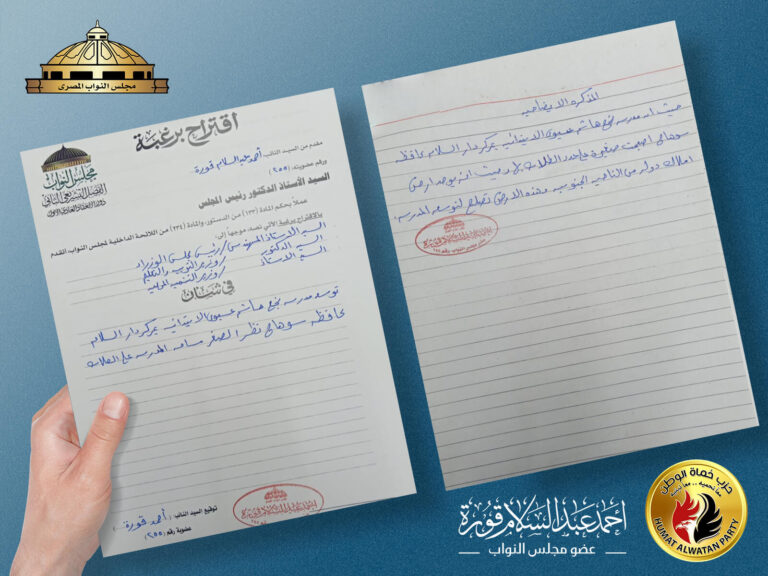 مجلس النواب المصرى
اقتراح برغبة
مجلس النواب
الفصل التشريعي الثاني
دور الانعقاد العادي الرابع
مقدم من السيد النائب: أحمد عبد السلام قورة
ورقم عضويته: (٢٥٥)
السيد الأستاذ الدكتور رئيس المجلس
عملاً بحكم المادة (١٣٣) من الدستور، والمادة (٢٣٤) من اللائحة الداخلية لمجلس النواب، أتقدم
بالاقتراح برغبة الآتي نصه، موجهاً إلى:
السيد الاستاذ المهندس / رئيس مجلس الوزراء
السيد الدكتور / وزير التربية والتعليم
السيد الاستاذ / وزير التنمية المحلية
في شأن
توسعه مدرسه نجع هاشم عيسوى الابتدائيه بمركز دار السلام
محافظه سوهاج نظرا لصغر مساحه المدرسه على الطلاب
توقيع السيد النائب: (أحمد قورة)
عضوية رقم (٢٥٥)
المذكره الايضاحيه
حيث ان مدرسه نجع هاشم عيسوى الابتدائيه بمركز دار السلام محافظه
سوهاج اصبحت صغيرة على عدد الطلاب بها وحيث انه يوجد ارض
املاك دوله من الناحيه الجنوبيه وهذه الارض تصلح لتوسعه المدرسه
احمد عبد السلام قورة
عضو مجلس النواب
حزب حماة الوطن
HUMAT ALWATAN PARTY